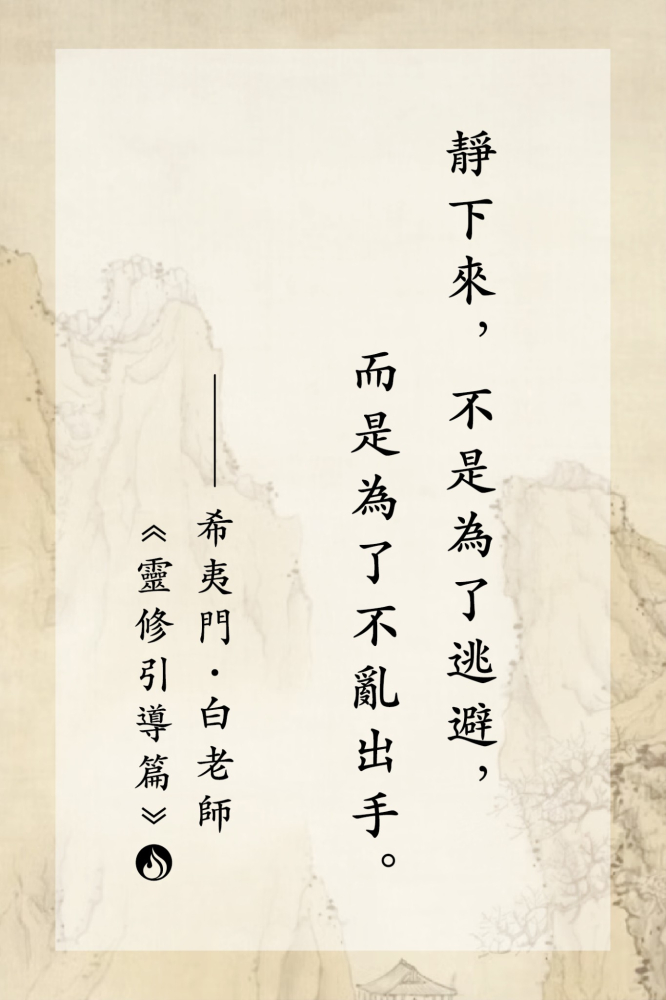 靜下來，不是為了逃避，
而是為了不亂出手。
——希夷門·白老師
《靈修引導篇》